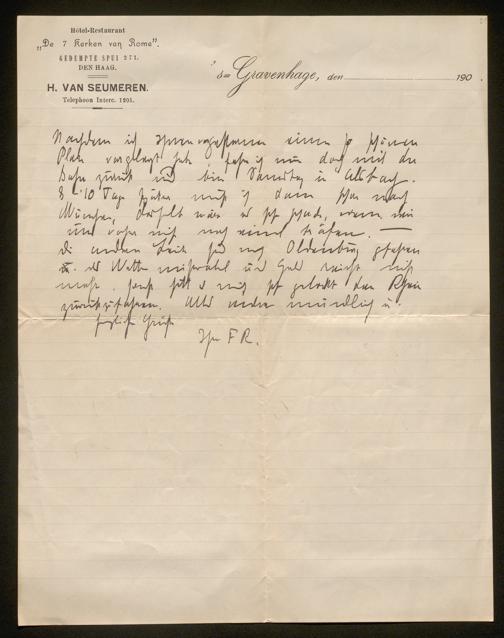 Hôtel-Restaurant
„De 7 Kerken van Rome".
GEDEMPTE SPUI 271.
DEN HAAG.
H. VAN SEUMEREN.
Telephoon Interc. 1291.
's-Gravenhage, den 190
Nachdem ich Ihnen vorgestern einen so schönen
Plan vorgelegt habe, fahre ich nun doch mit der
Bahn zurück und bin Samstag in
8-10 Tage später muß ich dann schon nach
München, deshalb wäre es sehr schade, wenn wir
uns vorher nicht noch einmal träfen. —
Die anderen Leute sind nach Oldenburg gefahren
u. das Wetter miserabel und Geld reicht nicht
mehr, sonst hätte es mich sehr gelockt den Rhein
zurückzufahren. Alles andere mündlich u.
herzliche Grüße
Ihr F R.